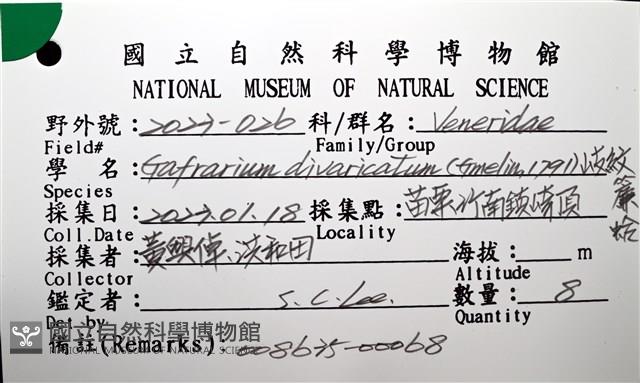 國立自然科學博物館
NATIONAL MUSEUM OF NATURAL SCIENCE
野外號：2023-026 科/群名：Veneridae
Field# Family/Group
學 名：Gafrarium divaricatum (Gmelin, 1791) 歧紋簾蛤
Species
採集日：2023.01.18 採集點：苗栗竹南鎮崎頂
Coll.Date Locality
採集者：黃興倬、洪和田 海拔： m
Collector Altitude
鑑定者： S. C. Lee. 數量： 8
Det.by Quantity
備註(Remarks)：008635-00068
國立自然科學博物館
NATIONAL MUSEUM OF NATURAL SCIENCE